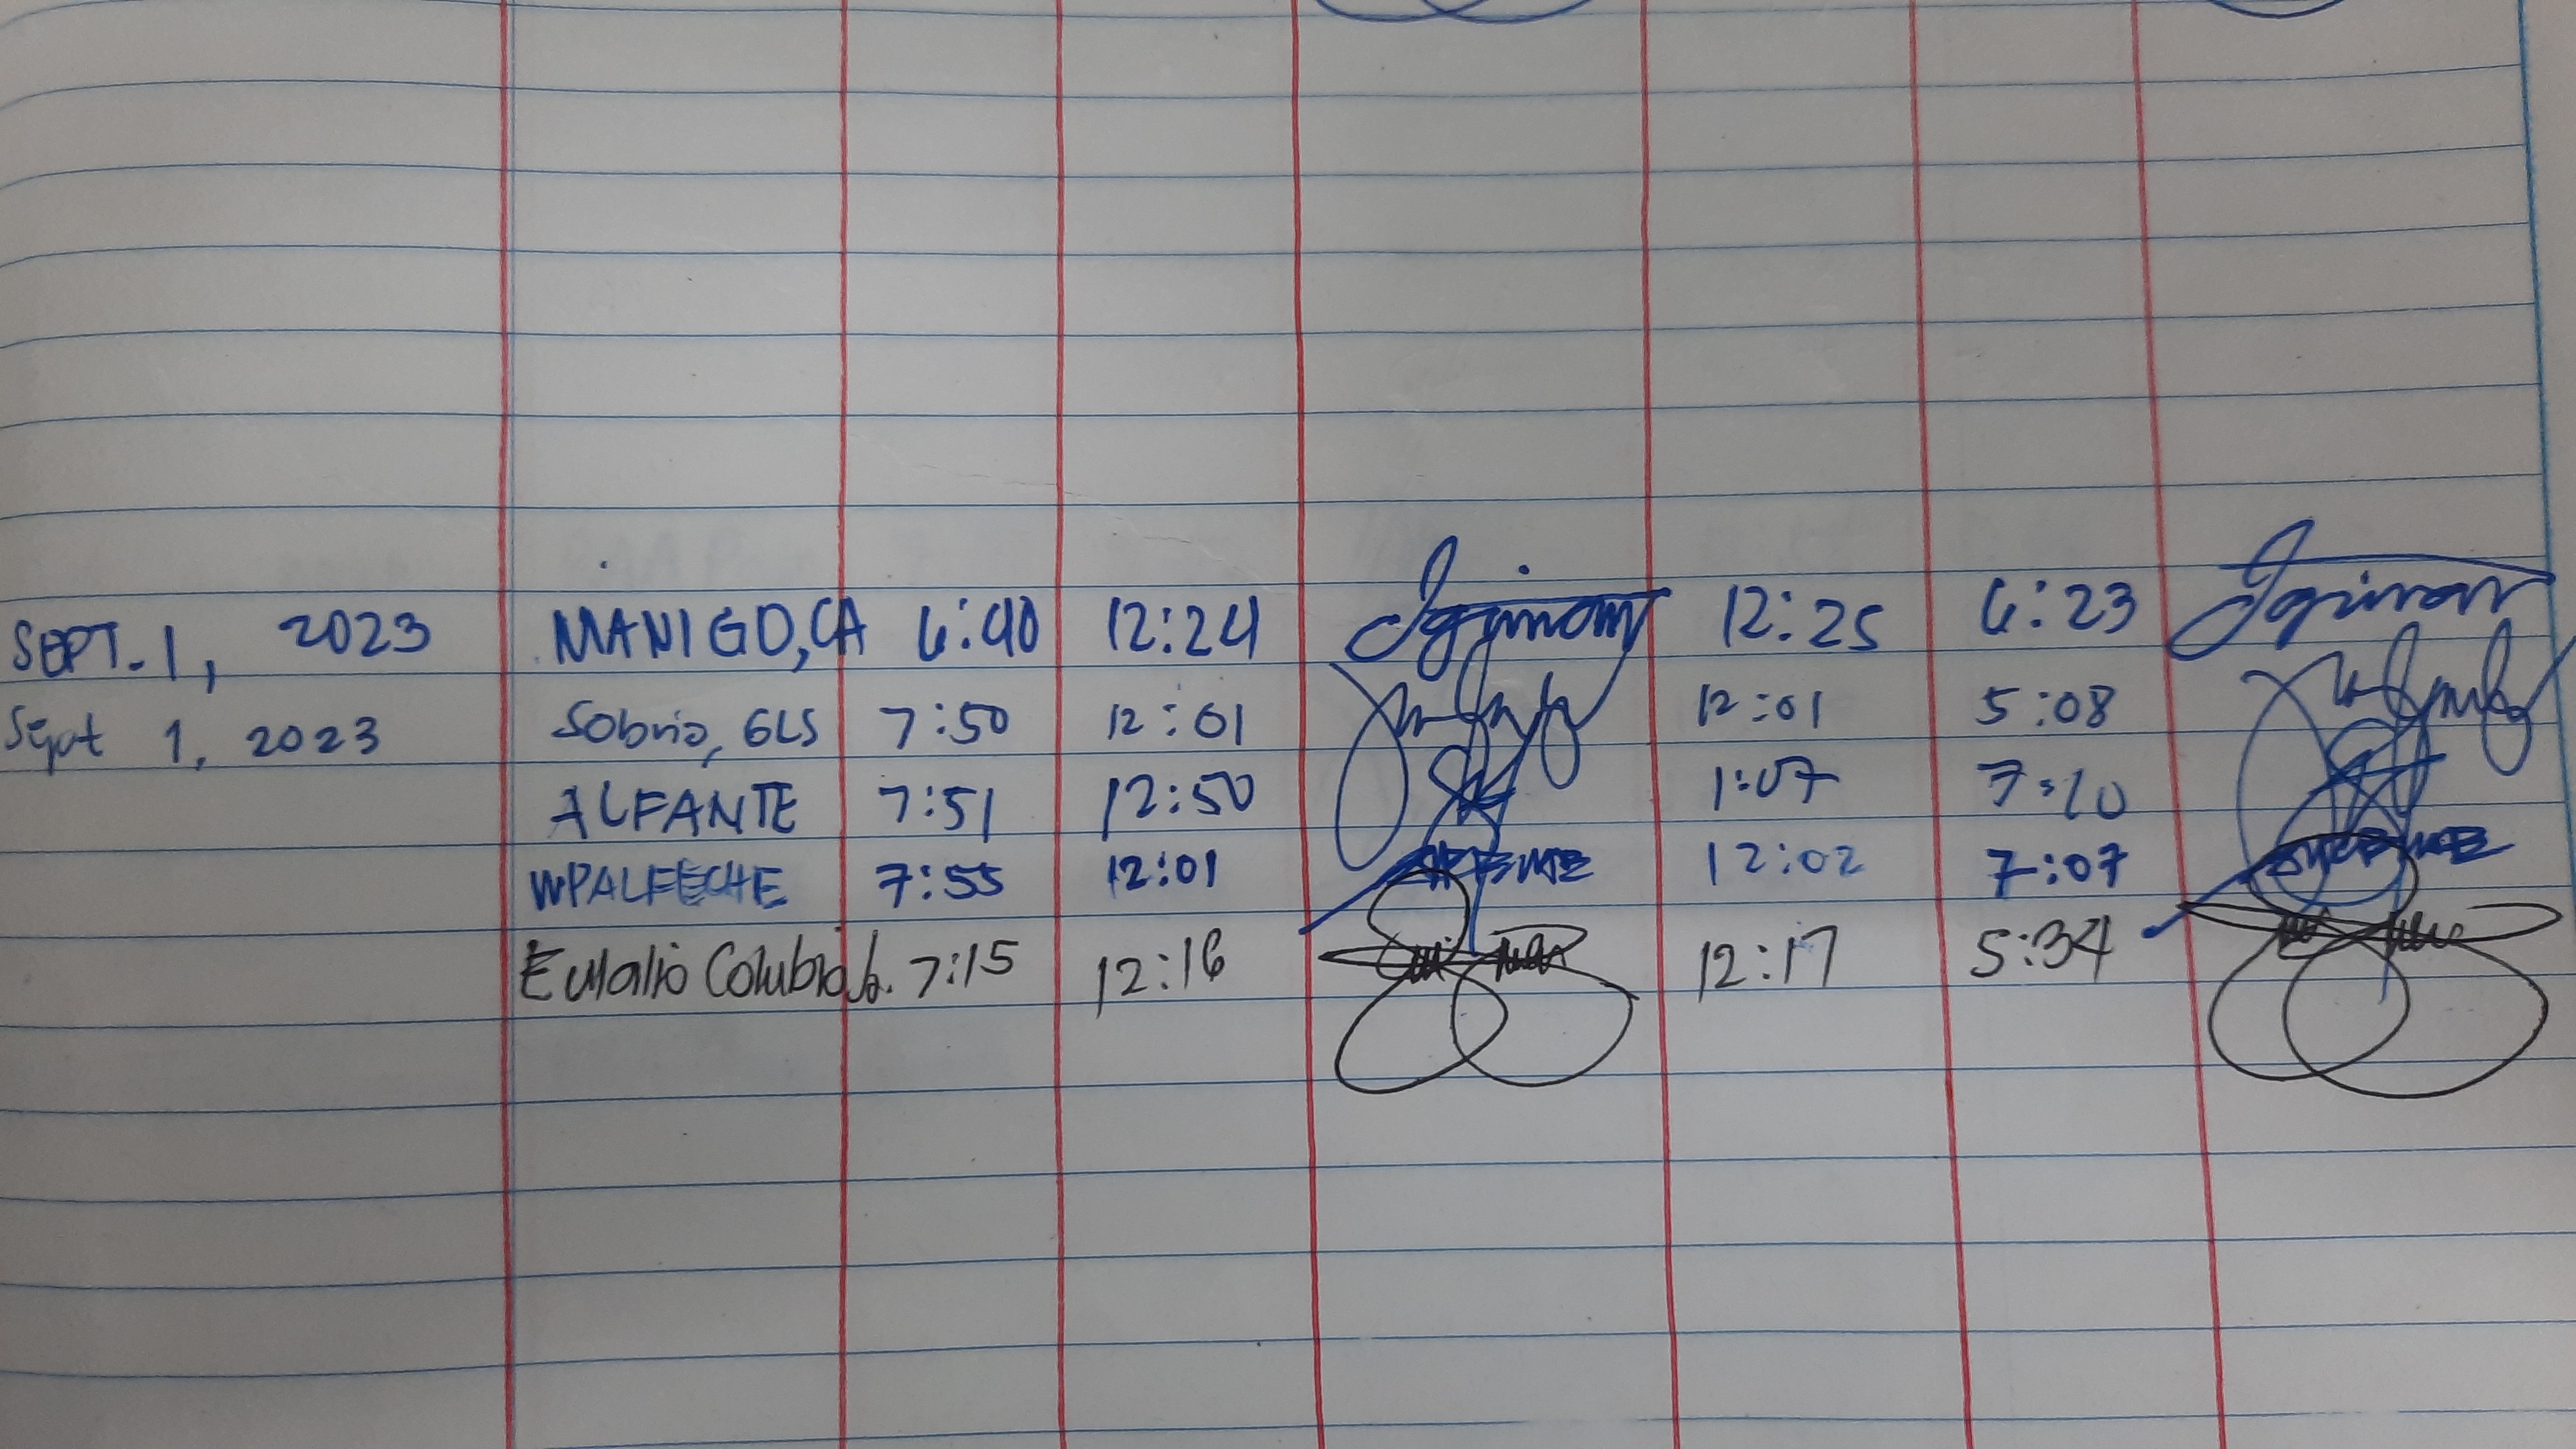 SEPT. 1, 2023 MANIGO, CA 6:40 12:24 12:25 6:23
Sept 1, 2023 Sobrio, GLS 7:50 12:01 12:01 5:08
ALFANTE 7:51 12:50 1:07 7:10
WPALFECHE 7:55 12:01 12:02 7:07
Eulalio Colubio Jr. 7:15 12:16 12:17 5:34